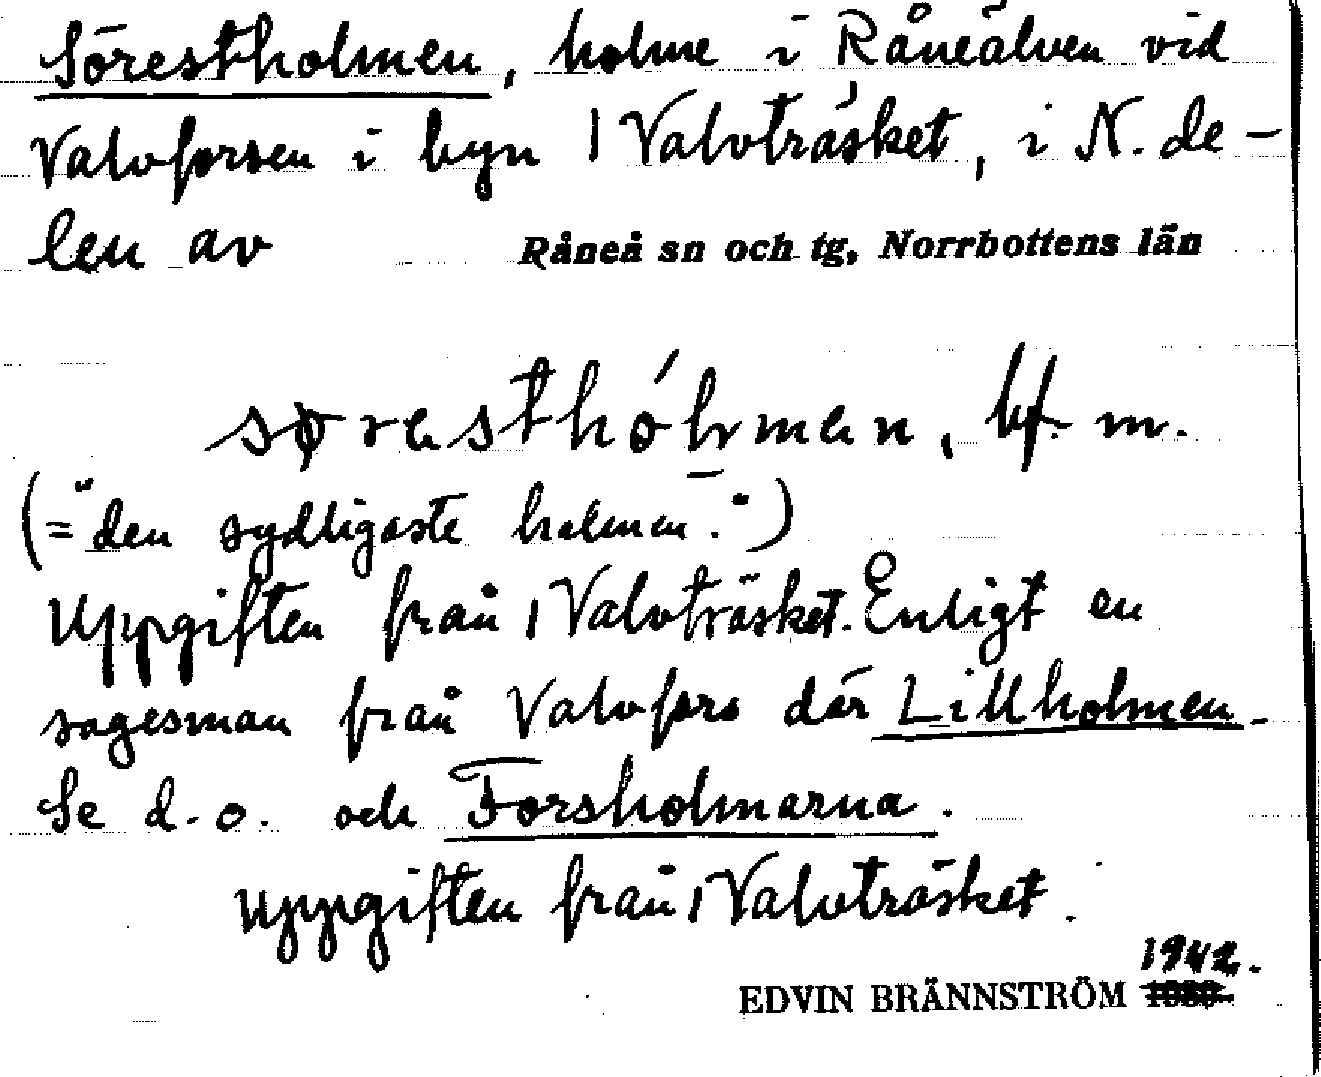 Sörestholmen, holme i Råneälven vid
Valvforsen i byn Valvträsket, i N. de-
len av Råneå sn och tg, Norrbottens län
bf. m.
(="den sydligaste holmen".)
Uppgiften från Valvträsket. Enligt en
sagesman från Valvfors där Lillholmen.
Se d.o. och Forsholmarna.
Uppgiften från Valvträsket.
1942.
EDVIN BRÄNNSTRÖM